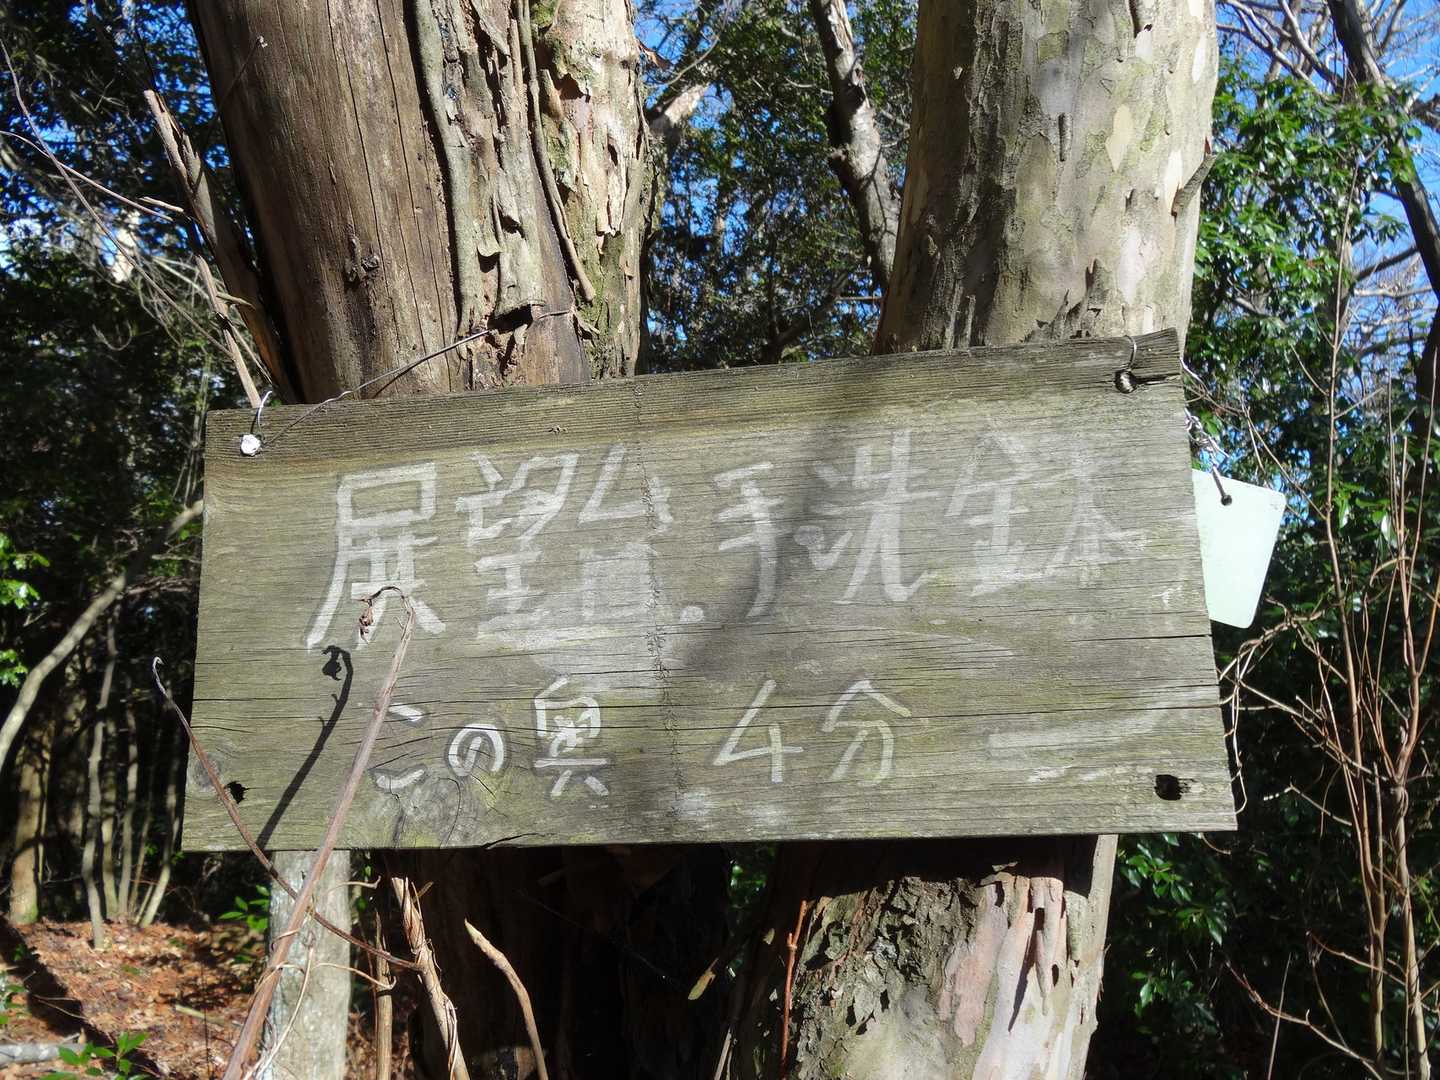 展望台.手洗鉢
この奥 4分